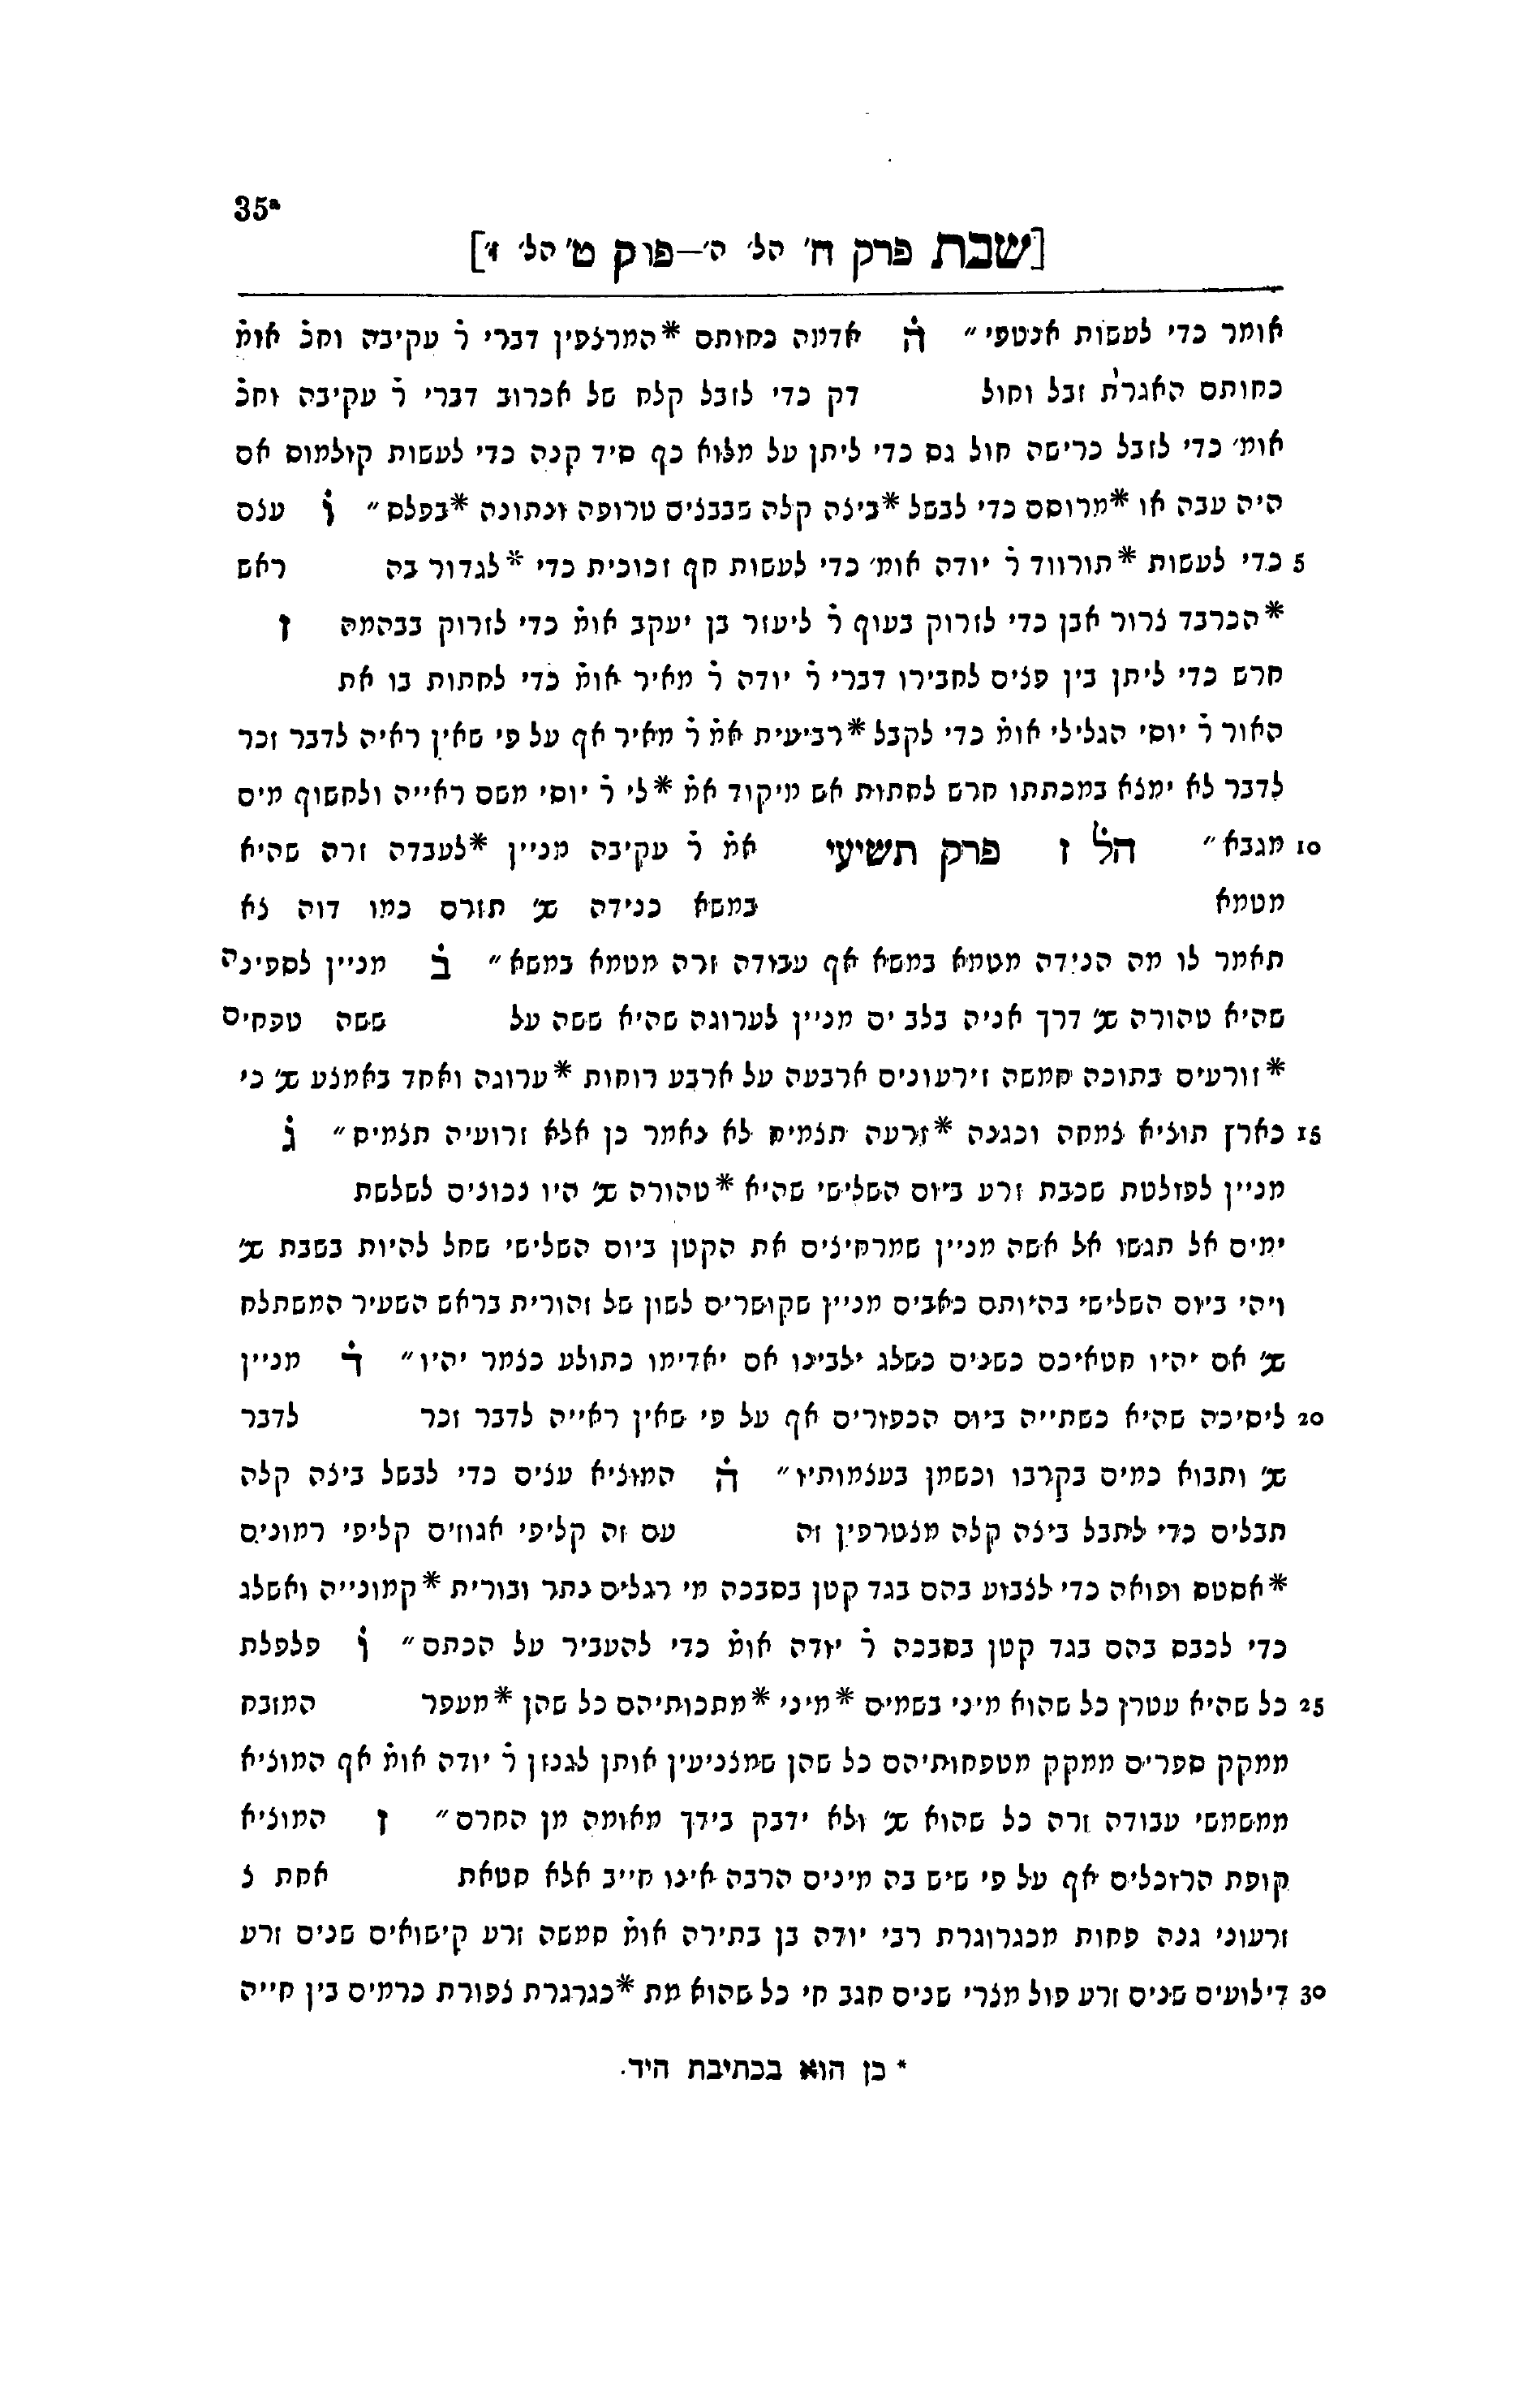 35ª
[שבת פרק ח׳ הל׳ ה׳—פרק ט׳ הל׳ ז׳]
אומר כדי לעשות אנטפי״ ה אדמה כחותם *המרצפין דברי ר̇ עקיבה וחכ̇ אומ̇
כחותם האגרת זבל וחול דק כדי לזבל קלח של אכרוב דברי ר̇ עקיבה וחכ̇
אומ׳ כדי לזבל כרישה חול גס כדי ליתן על מלוא כף סיד קנה כדי לעשות קולמוס אם
היה עבה או *מרוסס כדי לבשל *ביצה קלה שבבצים טרופה ונתונה *בפלס״ ו עצם
5 כדי לעשות *תורווד ר̇ יודה אומ׳ כדי לעשות חף זכוכית כדי *לגדור בה ראש
*הכרבד צרור אבן כדי לזרוק בעוף ר̇ ליעזר בן יעקב אומ̇ כדי לזרוק בבהמה ז
חרש כדי ליתן בין פצים לחבירו דברי ר̇ יודה ר̇ מאיר אומ̇ כדי לחתות בו את
האור ר̇ יוסי הגלילי אומ̇ כדי לקבל *רביעית אמ̇ ר̇ מאיר אף על פי שאין ראיה לדבר זכר
לדבר לא ימצא במכתתו חרש לחתות אש מיקוד אמ̇ *לי ר̇ יוסי משם ראייה ולחשוף מים
10 מגבא״ הל̇ ז פרק תשיעי אמ̇ ר̇ עקיבה מניין *לעבדה זרה שהיא
מטמא במשא כנידה שנ׳ תזורם כמו דוה צא
תאמר לו מה הנידה מטמא במשא אף עבודה זרה מטמא במשא״ ב מניין לספינה
שהיא טהורה שנ׳ דרך אניה בלב ים מניין לערוגה שהיא ששה על ששה טפחים
*זורעים בתוכה חמשה זירעונים ארבעה על ארבע רוחות *ערוגה ואחד באמצע שנ׳ כי
15 כארץ תוציא צמחה וכגנה *זרעה תצמיח לא נאמר כן אלא זרועיה תצמיח״ ג
מניין לפולטת שכבת זרע ביום השלישי שהיא *טהורה שנ׳ היו נכונים לשלשת
ימים אל תגשו אל אשה מניין שמרחיצים את הקטן ביום השלישי שחל להיות בשבת שנ׳
ויהי ביום השלישי בהיותם כאבים מניין שקושרים לשון של זהורית בראש השעיר המשתלח
שנ׳ אם יהיו חטאיכם כשנים כשלג ילבינו אם יאדימו כתולע כצמר יהיו״ ד מניין
20 ליסיכה שהיא כשתייה ביום הכפורים אף על פי שאין ראייה לדבר זכר לדבר
שנ׳ ותבוא כמים בקרבו וכשמן בעצמותיו״ ה המוציא עצים כדי לבשל ביצה קלה
תבלים כדי לתבל ביצה קלה מצטרפין זה עם זה קליפי אגוזים קליפי רמונים
*אסטס ופואה כדי לצבוע בהם בגד קטן בסבכה מי רגלים נתר ובורית *קמונייה ואשלג
כדי לכבס בהם בגד קטן בסבכה ר̇ יודה אומ̇ כדי להעביר על הכתם״ ו פלפלת
25 כל שהיא עטרן כל שהוא מיני בשמים *מיני *מתכותיהם כל שהן *מעפר המזבח
ממקק ספרים ממקק מטפחותיהם כל שהן שמצניעין אותן לגנזן ר̇ יודה אומ̇ אף המוציא
ממשמשי עבודה זרה כל שהוא שנ׳ ולא ידבק בידך מאומה מן החרם״ ז המוציא
קופת הרוכלים אף על פי שיש בה מינים הרבה אינו חייב אלא חטאת אחת צ
זרעוני גנה פחות מכגרוגרת רבי יודה בן בתירה אומ̇ חמשה זרע קישואים שנים זרע
30 דילועים שנים זרע פול מצרי שנים חגב חי כל שהוא מת *כגרגרת צפורת כרמים בין חייה
* כן הוא בכתיבת היד.